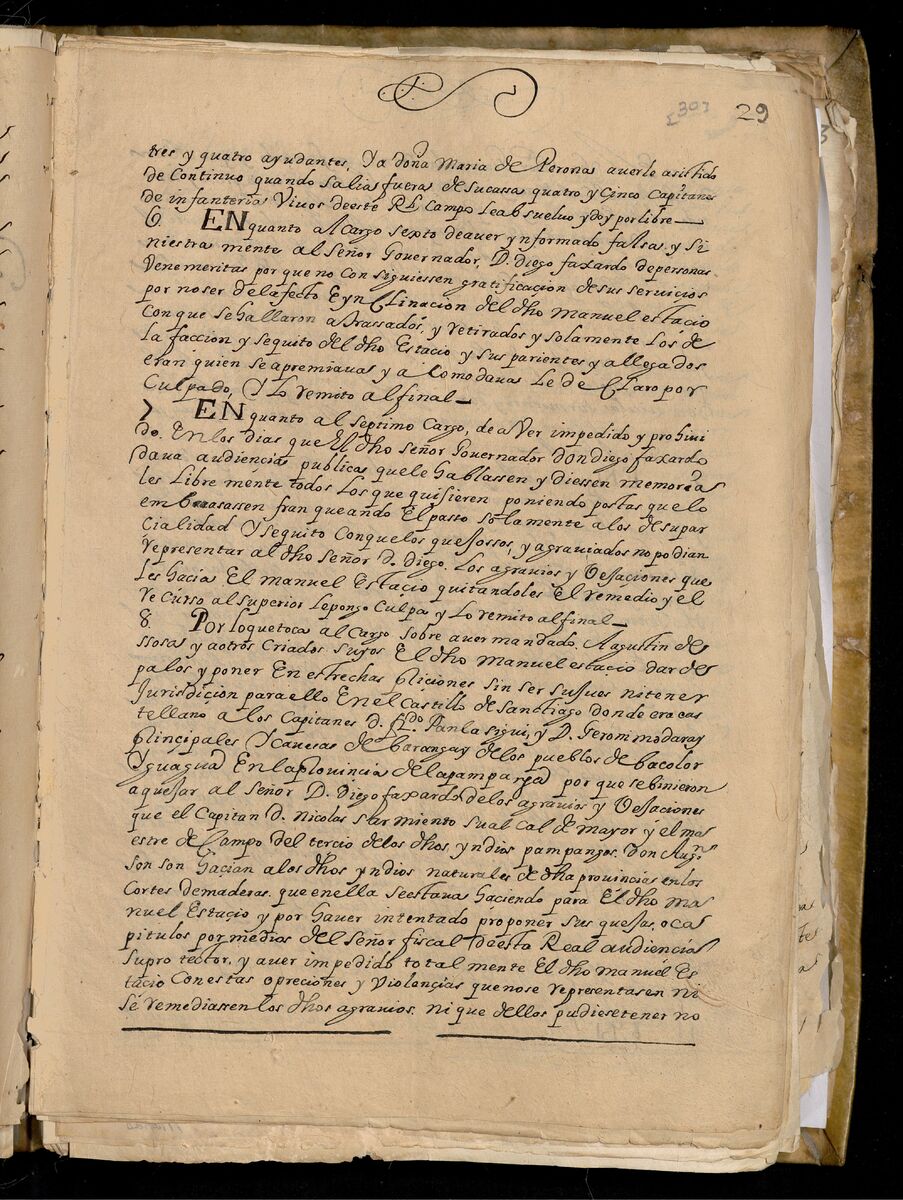 [30]
29
tres y quatro ayudantes, Ya doña Maria de Peronas averle asistido
de Continuo quando Salia fuera de su cassa quatro y Cinco Capitanes
de infanteria Vivos deeste Rl Campo Le absuelvo y doy por libre
6. EN quanto al Cargo Sexto deaver ynformado falsa y Si
niestra mente al Señor Governador, D. Diego faxardo de personas
Venemeritas por que no Con siguiessen gratificacion de sus servicios
por no ser del afecto E ynClinacion del dho Manuel estacio
Con que Se hallaron atrassados, y retirados y solamente Los de
La faccion y sequito del dho Estacio y sus parientes y allegados
eran quien Se apremiavas y a Comodavas Le de Claro por
Culpado, Y Lo remito al final
7 EN quanto al Septimo Cargo, de aver impedido y prohivi
do. En los dias que El dho señor Governador Don diego faxardo
dava audiencias publicas que le hablassen y diessen memorias
les Libre mente todos Los que quisieren poniendo postas que lo
embarasassen fran queando El passo solamente a los de su par
Cialidad Y sequito Conque los quejossos, y agraviados no podian
representar al dho señor D. diego. Los agravios y Vejaciones que
Les hacia El manuel Estacio quitandoles El remedio y el
re Curso al Superior Lepongo Culpa y Lo remito al final
8. Por loquetoca al Cargo sobre aver mandado. Agustin de
ssosa y aotros Criados suyos El dho manuel estacio dar de
palos y poner En estrechas priciones sin ser sujuos ni tener
Jurisdicion para ello En el Castillo de Sanctiago donde era cas
tellano a los Capitanes D. fdo Panla sigui, y D. Geronimo daray
principales Y Cavesas de barangay de los pueblos de bacolor
Y guagua En la provincia de la pampanga por que se binieron
a quejar al Señor D. Diego faxardo de los agravios y Vejaciones
que el Capitan D. Nicolas sarmiento su al Cal de mayor y el ma
estre de Campo del tercio de los dhos yndios pampangos. Don Augn
son son haçian a los dhos yndios naturales de dha provincias en los
Cortes de maderas, que en ella Se estava haciendo para El dho ma
nuel Estacio y por haver intentado proponer sus quejas, o ca
pitulos por medios del señor fiscal deesta Real audiencia
Su pro tector, y aver impedido total mente El dho manuel Es
tacio Con estas opreciones y violencias que no se representasen ni
Se remediassen los dhos agravios. ni que dellos pudiese tener no